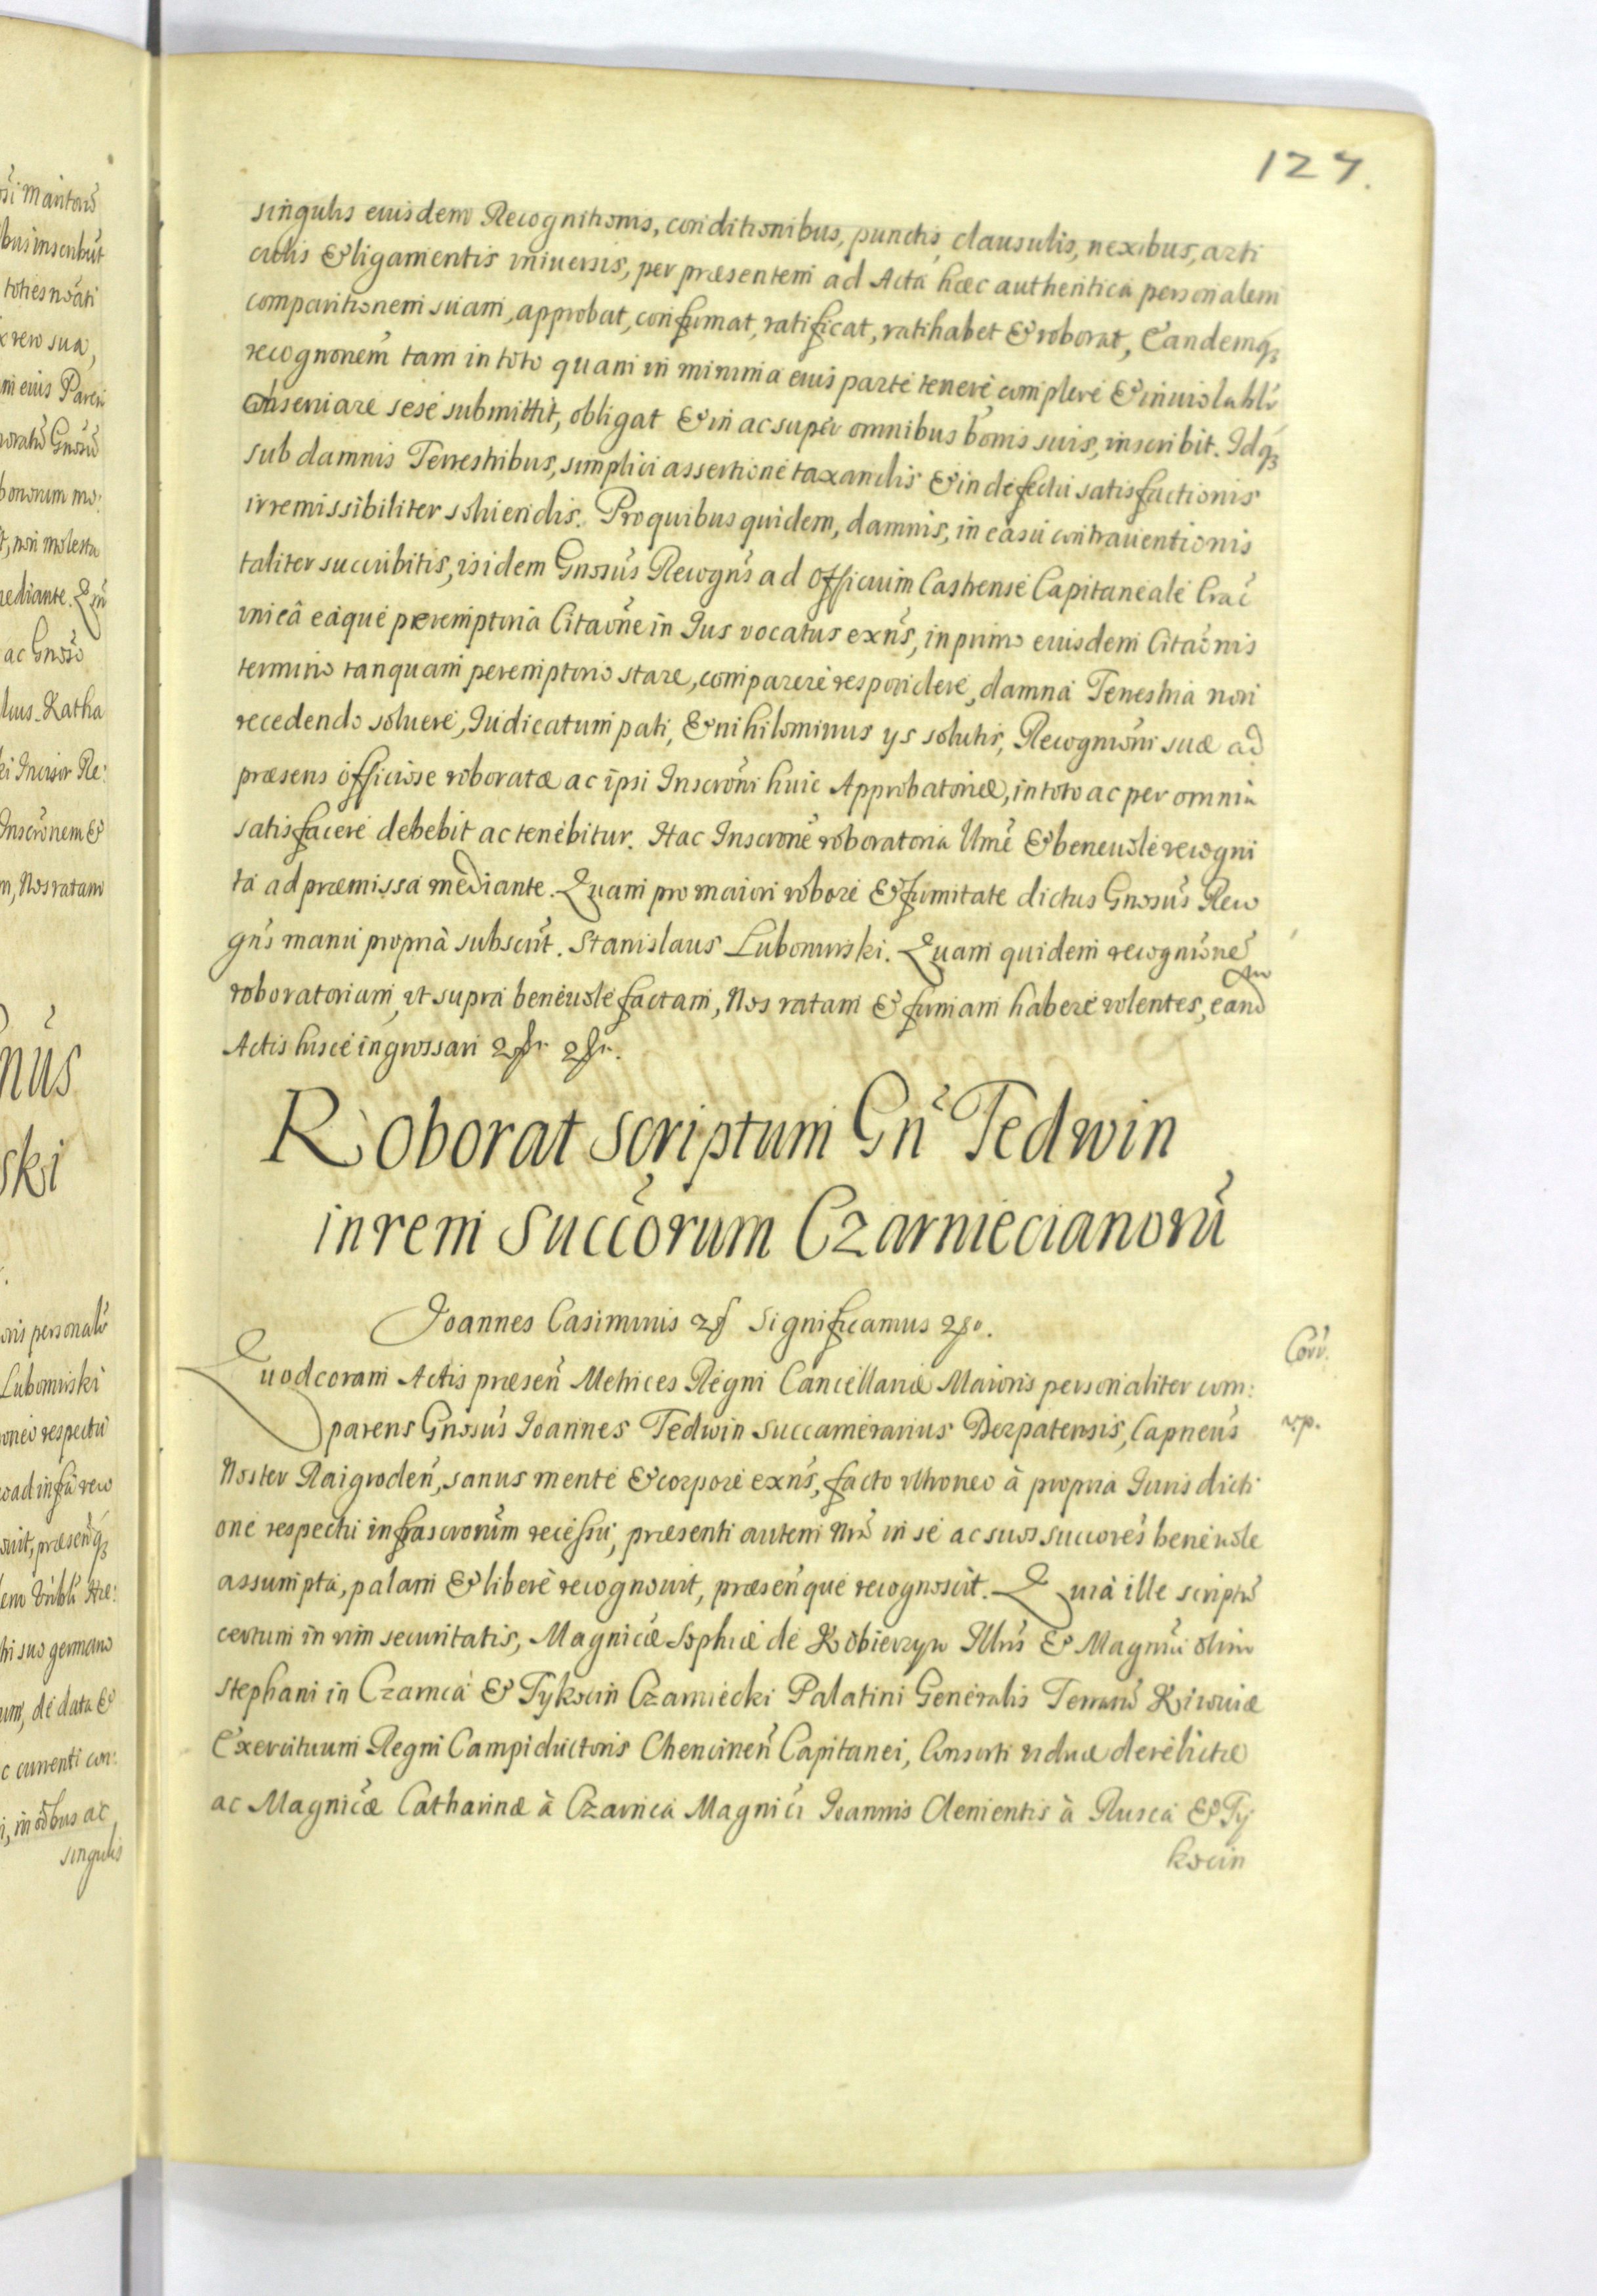 127.
singulis eiusdem Recognitionis, conditionibus, punctis, clausulis, nexibus, arti
culis & ligamentis vniuersis, per præsentem ad Acta hæc authentica personalem
comparitionem suam, approbat, confirmat, ratificat, ratihabet & roborat, Eandemq3
recognõnem tam in toto quam in minima eius parte tenere complere & inuiolabilr̃
obseruare sese submittit, obligat & in ac super omnibus bonis suis, inscribit. Idq3
sub damnis Terrestribus, simplici assertione taxandis & in defectu satisfactionis
irremissibiliter soluendis. Pro quibus quidem, damnis, in casu contrauentionis
taliter succubitis, is idem Gnosũs Recognñs ad Officium Castrense Capitaneale Crac̃
vnicâ eâque peremptoria Citaõne in Ius vocatus exñs, in primo eiusdem Citaõnis
termino tanquam peremptorio stare, comparere respondere, damna Terrestria non
recedendo soluere, Iudicatum pati, & nihilominus ys solutis, Recognitõni suæ ad
præsens officiose roboratæ ac ipsi Inscrõni huic Approbatoriæ, in toto ac per omnia
satisfacere debebit ac tenebitur. Hac Inscrõne roboratoria Vmẽ & beneuole recogni
ta ad præmissa mediante. Quam pro maiori robore & firmitate dictus Gnosũs Reco
gñs manu propria subscrit̃. Stanislaus Lubomirski. Quam quidem recognitõnẽ
roboratoriam, vt supra beneuole factam, Nos ratam & firmam habere volentes, eand̃
Actis hisce ingrossari etc etc.
Roborat scriptum Gñ Tedwin
in rem succõrum Czarniecianorũ
Joannes Casimirus etc Significamus etc.
Quod coram Actis præseñ Metrices Regni Cancellariæ Maioris personaliter com:
parens Gnosũs Ioannes Tedwin succamerarius Derpatensis, Capneũs
Noster Raigrodeñ, sanus mente & corpore exñs, facto vltroneo à propria Iurisdicti
one respectu infrascrorũm recessu, præsenti autem Nrã in se ac suos succores̃ beneuole
assumpta, palam & libere recognouit, præseñque recognoscit. Quia ille scriptũ
certum in vim securitatis, Magnicæ̃ Sophiæ de Kobierzyn Illris̃ & Magnci̇̃ olim
Stephani in Czarnca & Tykocin Czarniecki Palatini Generalis Terrarũ Kiiouiæ
Exercituum Regni Campiductoris Chencineñ Capitanei, Consorti viduæ derelictæ
ac Magnicæ̃ Catharinæ à Czarnca Magnici̇̃ Ioannis Clementis à Rusca & Ty
kocin